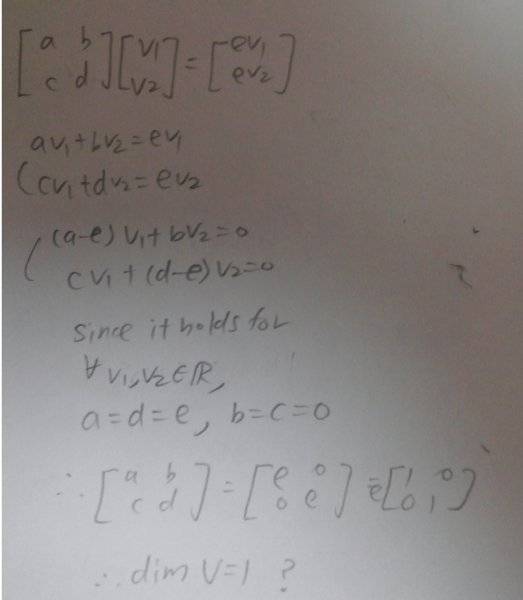 [a b; c d] [v1; v2] = [ev1; ev2]
av1+bv2=ev1
(cv1+dv2=ev2
(a-e)v1+bv2=0
(cv1+(d-e)v2=0
Since it holds for
∀v1,v2∈ℝ,
a=d=e, b=c=0
∴ [a b; c d] = [e 0; 0 e] = e[1 0; 0 1]
∴ dim V=1 ?